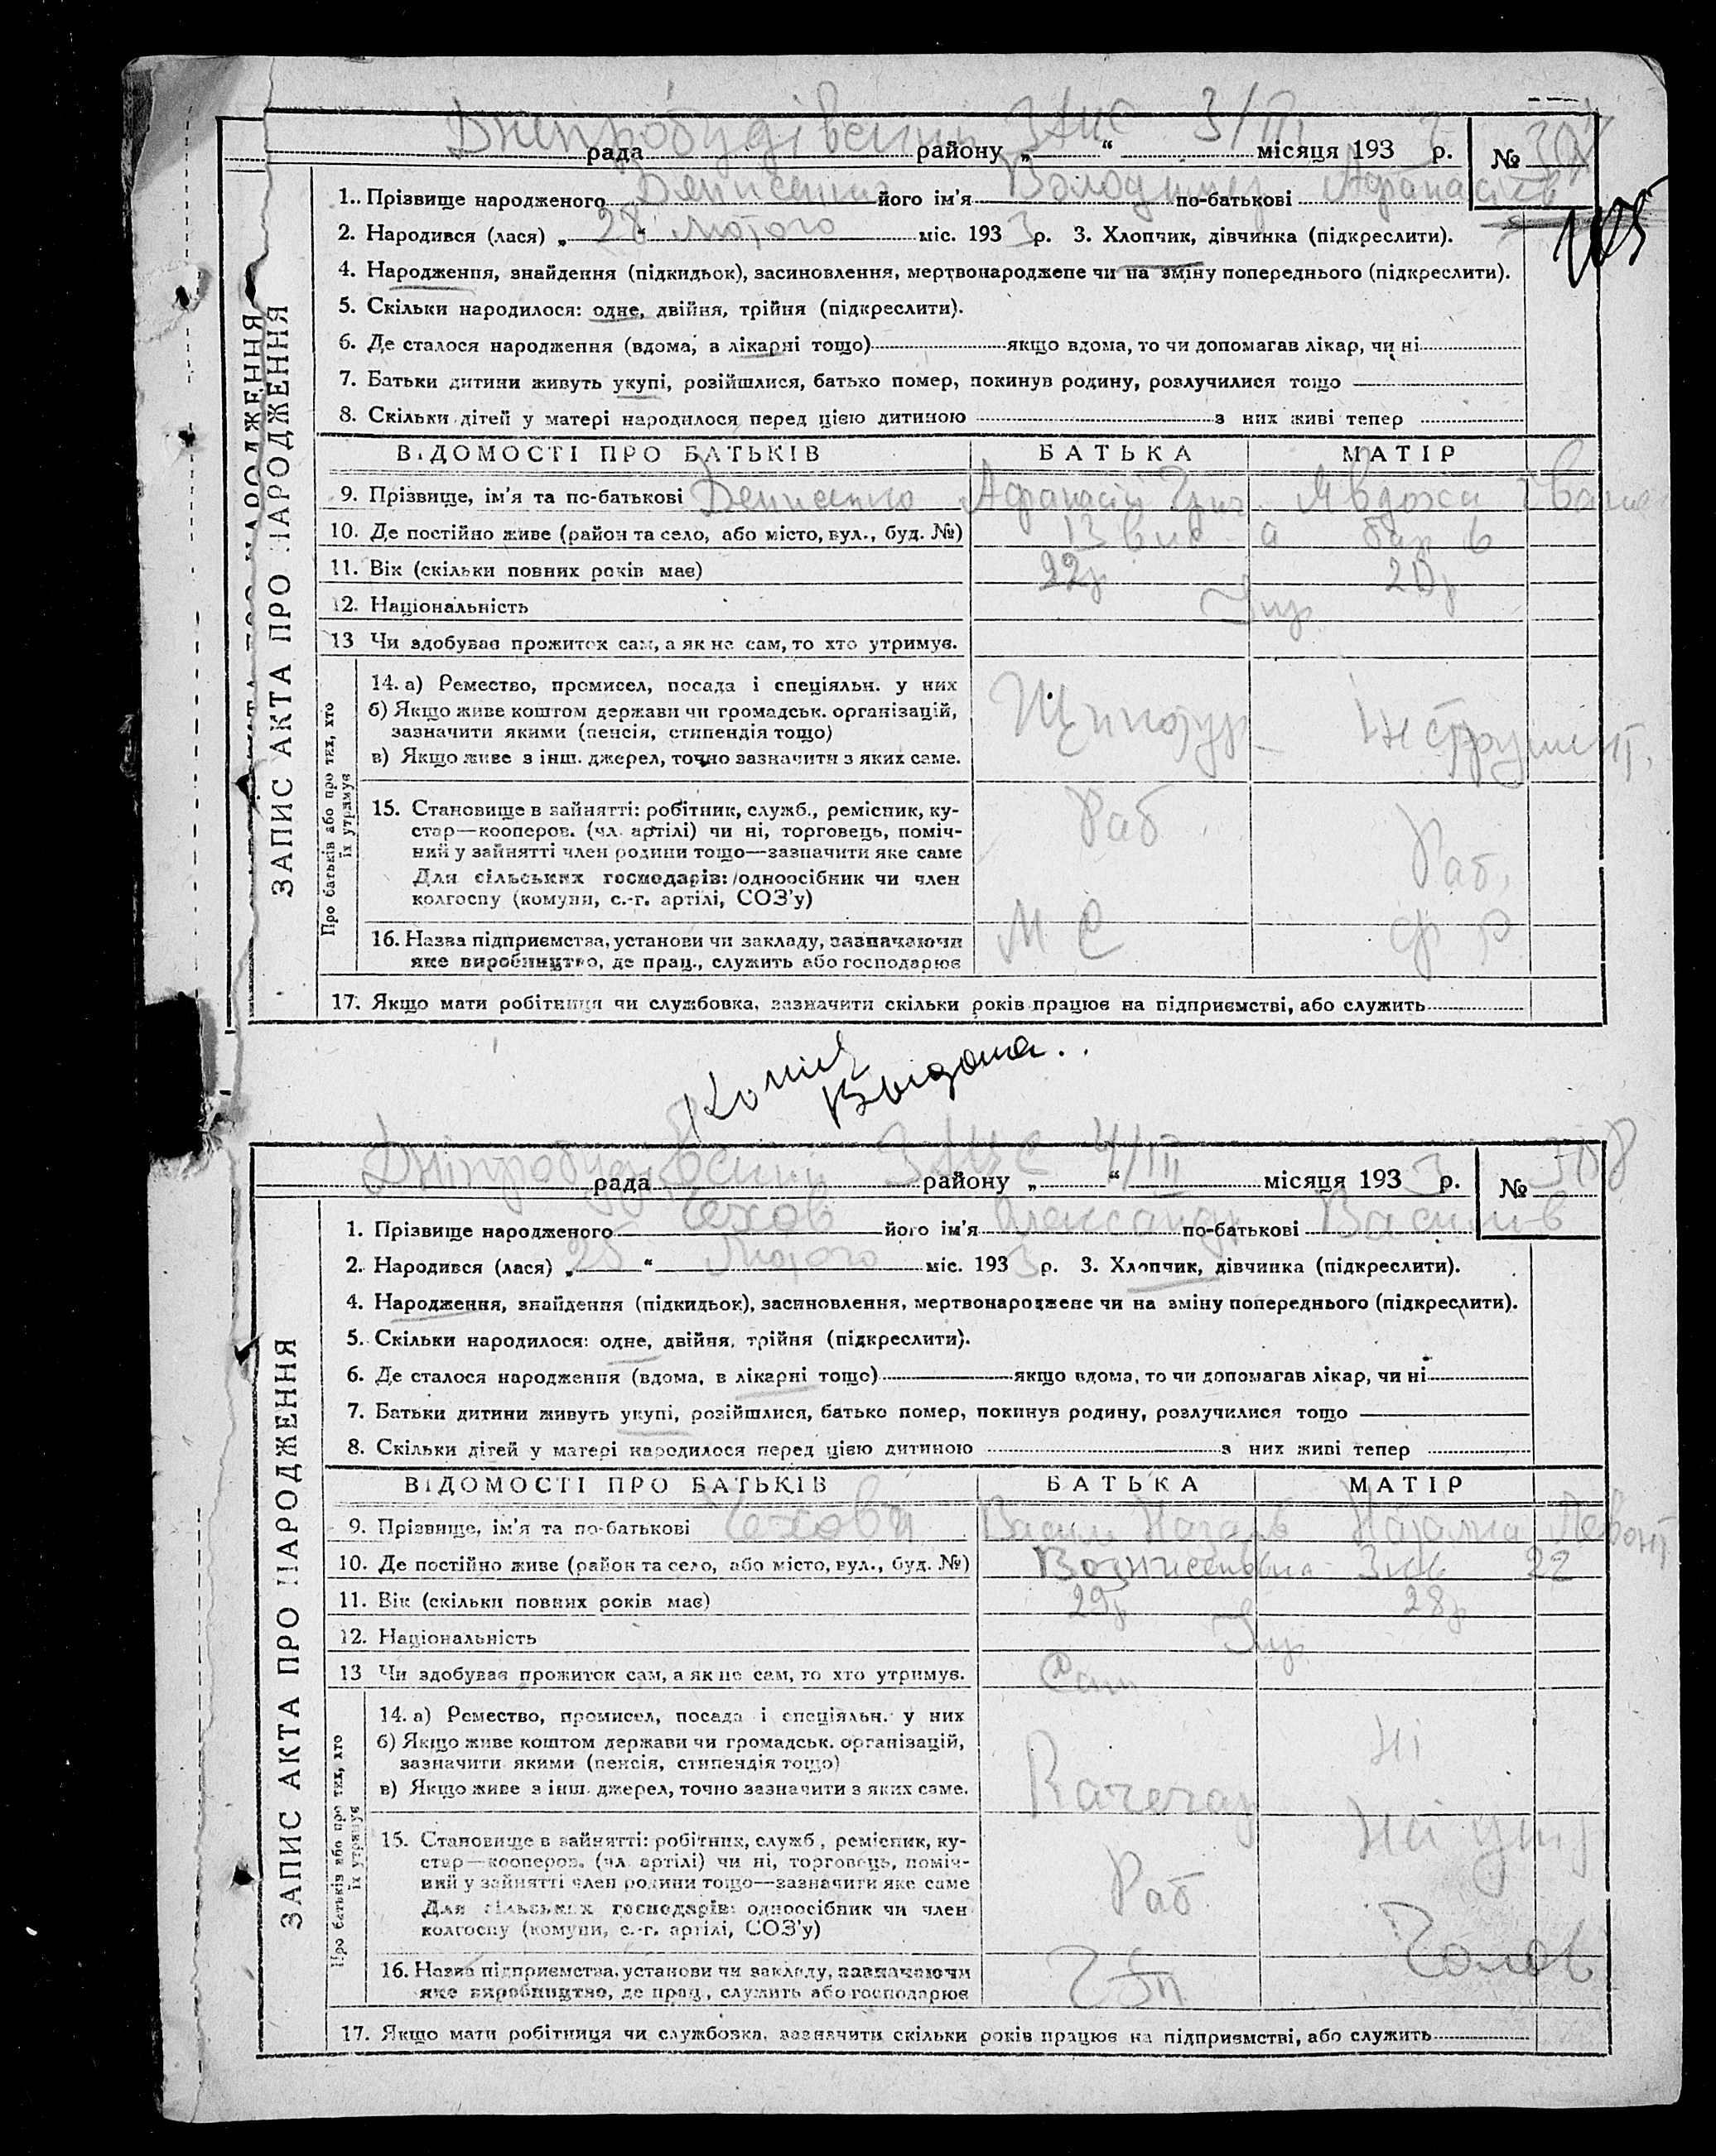 Дніпробудівський ЗАГС 3/III
рада району „ “ місяця 193 3 р. № 307
1. Прізвище народженого Денисенко його ім'я Володимир по-батькові Афанасієв
105
2. Народився (лася) „ 28 “ Лютого міс. 193 3 р. 3. Хлопчик, дівчинка (підкреслити).
4. Народження, знайдення (підкидьок), засиновлення, мертвонароджене чи на зміну попереднього (підкреслити).
5. Скільки народилося: одне, двійня, трійня (підкреслити).
6. Де сталося народження (вдома, в лікарні тощо) якщо вдома, то чи допомагав лікар, чи ні
7. Батьки дитини живуть укупі, розійшлися, батько помер, покинув родину, розлучилися тощо
8. Скільки дітей у матері народилося перед цією дитиною з них живі тепер
ЗАПИС АКТА ПРО НАРОДЖЕННЯ
ВІДОМОСТІ ПРО БАТЬКІВ БАТЬКА МАТІР
9. Прізвище, ім'я та по-батькові Денисенко Афанасій Григ Явдоха Іван
10. Де постійно живе (район та село, або місто, вул., буд. №) 13 вис. а бар 6
11. Вік (скільки повних років має) 22р 20р
12. Національність Укр
13 Чи здобуває прожиток сам, а як не сам, то хто утримує.
Про батьків або про тих, хто їх утримує
14. а) Ремество, промисел, посада і спеціяльн. у них
б) Якщо живе коштом держави чи громадськ. організацій,
зазначити якими (пенсія, стипендія тощо)
в) Якщо живе з інш. джерел, точно зазначити з яких саме.
Штукатур Інструмент.
15. Становище в зайнятті: робітник, служб., ремісник, ку-
стар—кооперов. (чл. артілі) чи ні, торговець, поміч-
ний у зайнятті член родини тощо—зазначити яке саме
Для сільських господарів: одноосібник чи член
колгоспу (комуни, с.-г. артілі, СОЗ'у)
Раб Раб.
16. Назва підприємства, установи чи закладу, зазначаючи
яке виробництво, де прац., служить або господарює
М С
17. Якщо мати робітниця чи службовка, зазначити скільки років працює на підприємстві, або служить
Копия
Выдана..
Дніпробудівський ЗАГС 4/III
рада району „ “ місяця 193 3 р. № 308
1. Прізвище народженого Чехов його ім'я Олександр по-батькові Васильов
2. Народився (лася) „ 25 “ Лютого міс. 193 3 р. 3. Хлопчик, дівчинка (підкреслити).
4. Народження, знайдення (підкидьок), засиновлення, мертвонароджене чи на зміну попереднього (підкреслити).
5. Скільки народилося: одне, двійня, трійня (підкреслити).
6. Де сталося народження (вдома, в лікарні тощо) якщо вдома, то чи допомагав лікар, чи ні
7. Батьки дитини живуть укупі, розійшлися, батько помер, покинув родину, розлучилися тощо
8. Скільки дітей у матері народилося перед цією дитиною з них живі тепер
ЗАПИС АКТА ПРО НАРОДЖЕННЯ
ВІДОМОСТІ ПРО БАТЬКІВ БАТЬКА МАТІР
9. Прізвище, ім'я та по-батькові Чехови Васил Назарь Наталка Левонт
10. Де постійно живе (район та село, або місто, вул., буд. №) 22
11. Вік (скільки повних років має) 29р 28р
12. Національність Укр
13 Чи здобуває прожиток сам, а як не сам, то хто утримує. Сам
Про батьків або про тих, хто їх утримує
14. а) Ремество, промисел, посада і спеціяльн. у них
б) Якщо живе коштом держави чи громадськ. організацій,
зазначити якими (пенсія, стипендія тощо)
в) Якщо живе з інш. джерел, точно зазначити з яких саме.
Качегар Ні
15. Становище в зайнятті: робітник, служб., ремісник, ку-
стар—кооперов. (чл. артілі) чи ні, торговець, поміч-
ний у зайнятті член родини тощо—зазначити яке саме
Для сільських господарів: одноосібник чи член
колгоспу (комуни, с.-г. артілі, СОЗ'у)
Раб На утр
16. Назва підприємства, установи чи закладу, зазначаючи
яке виробництво, де прац., служить або господарює
Чолов
17. Якщо мати робітниця чи службовка, зазначити скільки років працює на підприємстві, або служить